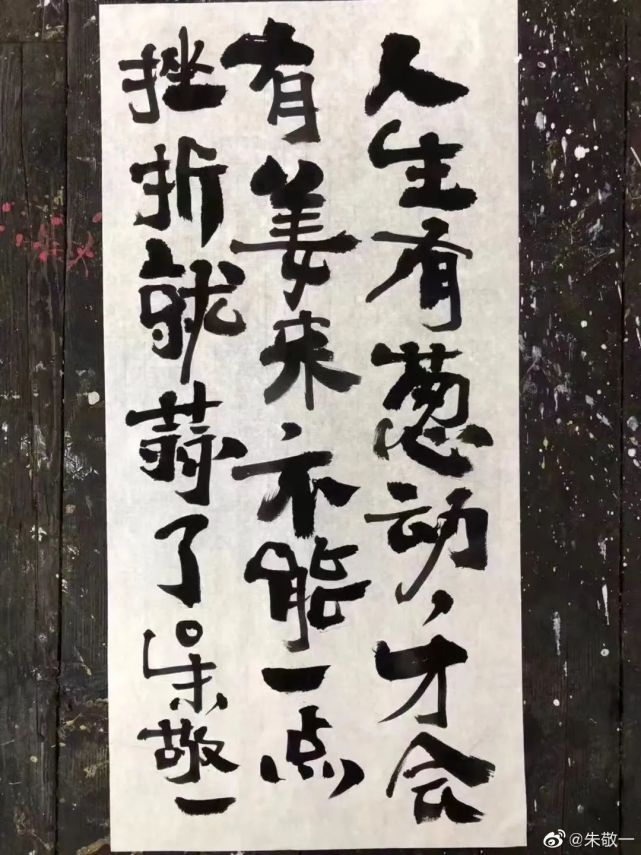 人生有葱动，才会
有姜来，不能一点
挫折就蒜了。朱敬一
@朱敬一